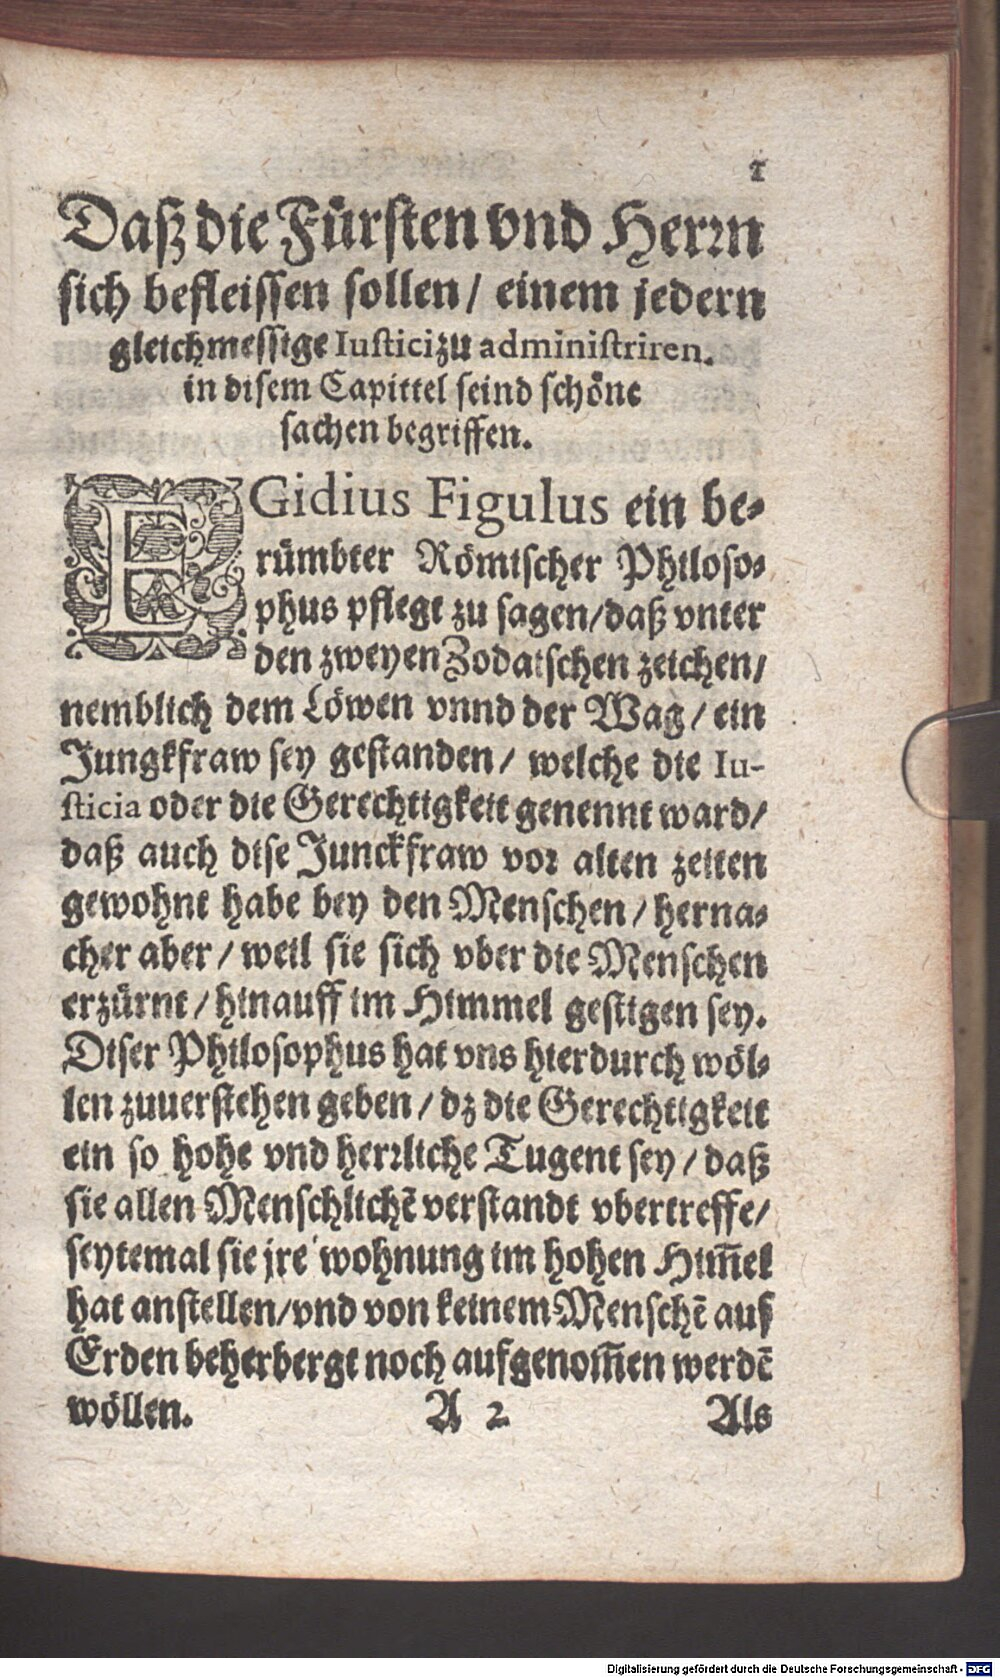 1
Daß die Fürsten vnd Herrn
sich befleissen sollen / einem jedern
gleichmessige Iustici zu administriren.
in disem Capittel seind schöne
sachen begriffen.
EGidius Figulus ein be-
rümbter Römischer Philoso-
phus pflegt zu sagen / daß vnter
den zweyen Zodaischen zeichen /
nemblich dem Löwen vnnd der Wag / ein
Jungkfraw sey gestanden / welche die Iu-
sticia oder die Gerechtigkeit genennt ward /
daß auch dise Junckfraw vor alten zeiten
gewohnt habe bey den Menschen / herna-
cher aber / weil sie sich vber die Menschen
erzürnt / hinauff im Himmel gestigen sey.
Diser Philosophus hat vns hierdurch wöl-
len zuuerstehen geben / dz die Gerechtigkeit
ein so hohe vnd herrliche Tugent sey / daß
sie allen Menschlichē verstandt vbertreffe /
seytemal sie jre wohnung im hohen Him̄el
hat anstellen / vnd von keinem Menschē auf
Erden beherbergt noch aufgenom̄en werdē
wöllen. A 2 Als
Digitalisierung gefördert durch die Deutsche Forschungsgemeinschaft - DFG